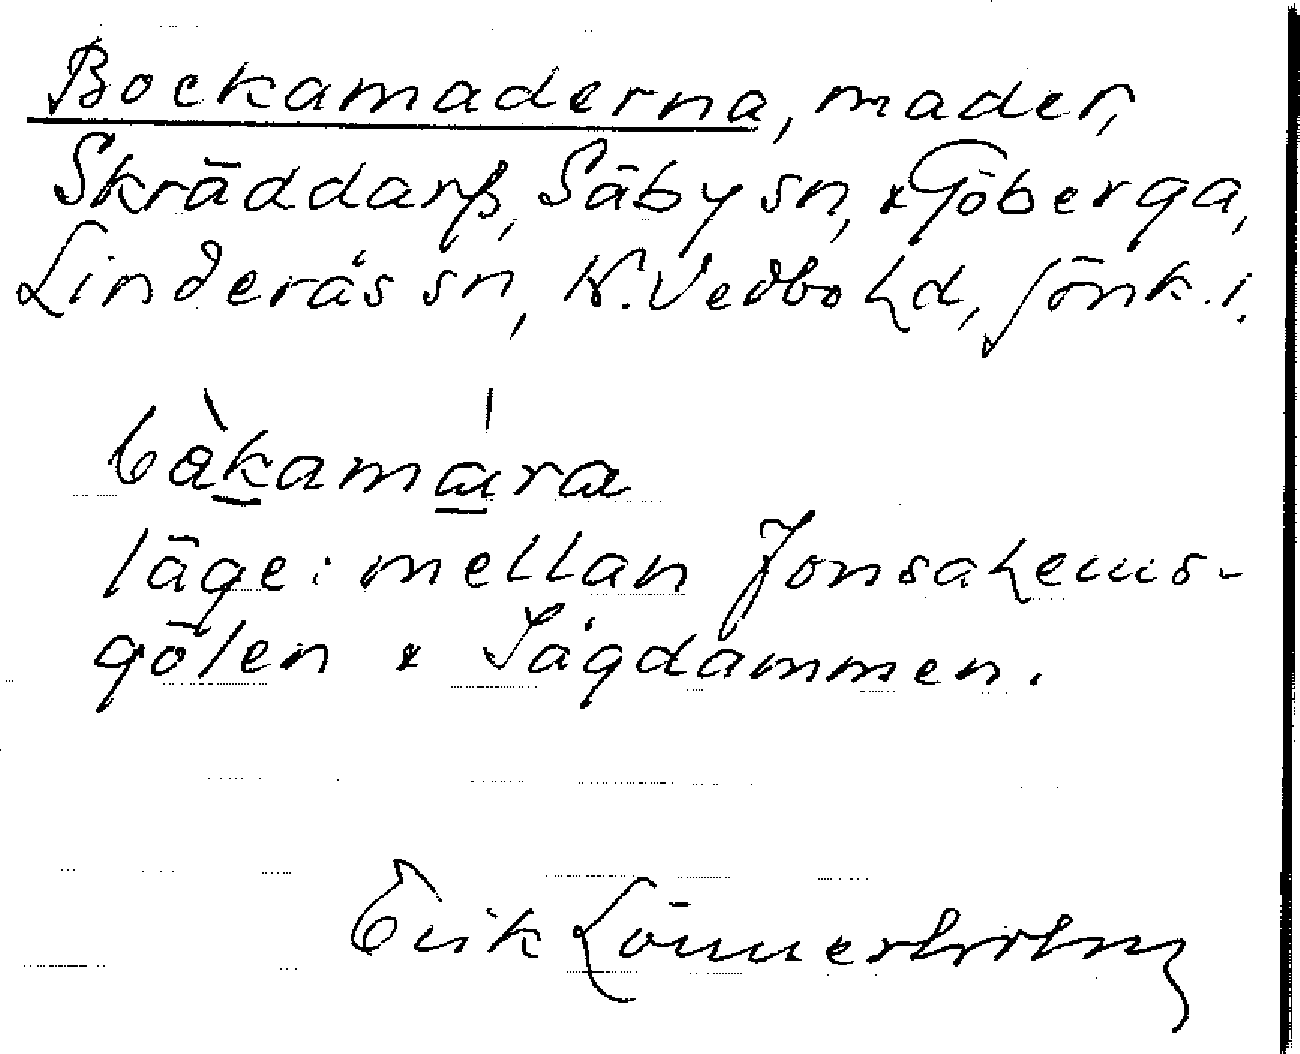 Bockamaderna, mader,
Skräddarp, Säby sn, & Göberga,
Linderås sn, N. Vedbo hd, Jönk. l.
bàkamára
läge: mellan Jonsahems-
gölen & Sågdammen.
Erik Lönnerholm